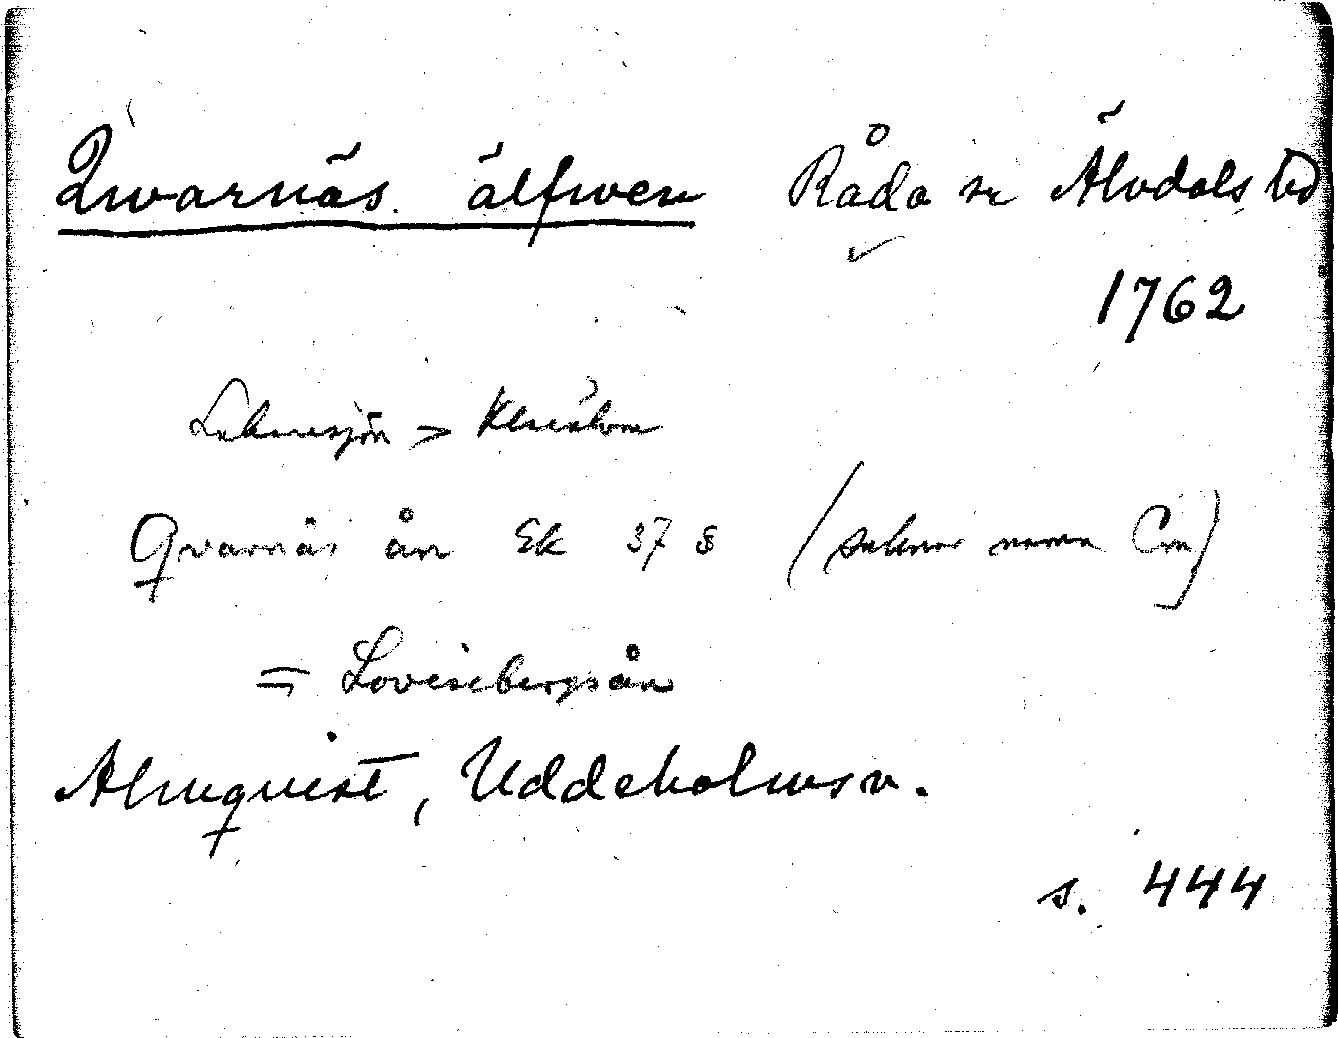 Qwarnäs älfwen Råda sn Älvdals hd
1762
Lakensjön > Klarälven
Qvarnås ån Ek 37 8 (saknar namn Cm)
= Lovisebergsån
Almquist, Uddeholmsv.
s. 444